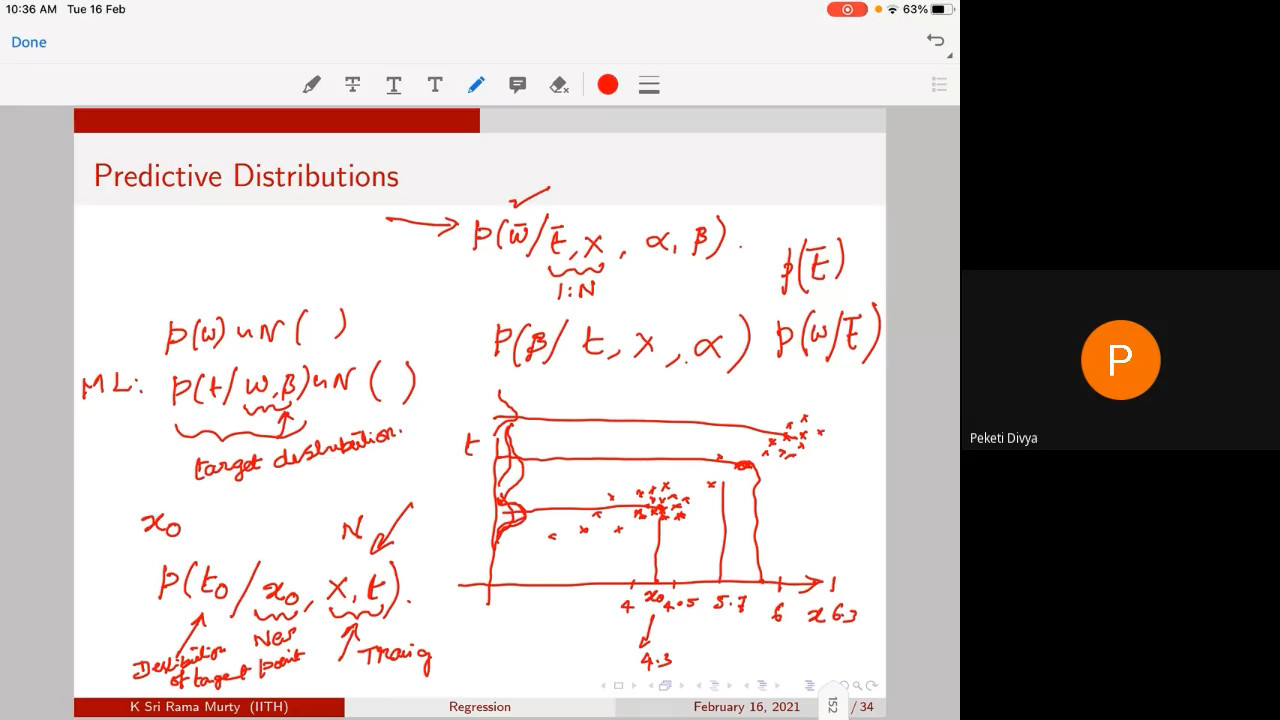 10:36 AM Tue 16 Feb
63%
Done
Predictive Distributions
p(w̄/t̄, X, α, β).
1:N
p(t̄)
p(w) ~ N( )
p(β/ t, X, α) p(w/t̄)
ML: p(t/w,β) ~ N( )
target destribution.
t
x0
N
p(t0/x0, X, t).
New point
Training
Destribution
of target
4 x0 4.5 5.7 6 x 6.3
4.3
Peketi Divya
P
K Sri Rama Murty (IITH) Regression February 16, 2021 152 / 34